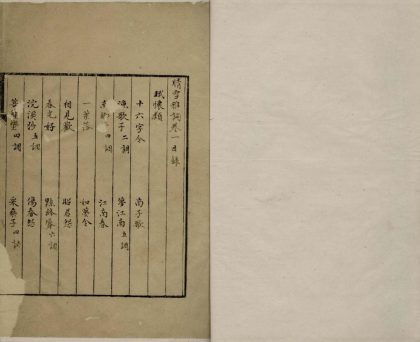 晴雪雅詞卷一目錄
賦懷類
十六字令 南子歌
漁歌子二調 夢江南五調
四調 江南春
一葉落 如夢令
相見歡 昭君怨
春光好 點絳脣六調
浣溪沙五調 傷春怨
菩薩蠻四調 采桑子四調